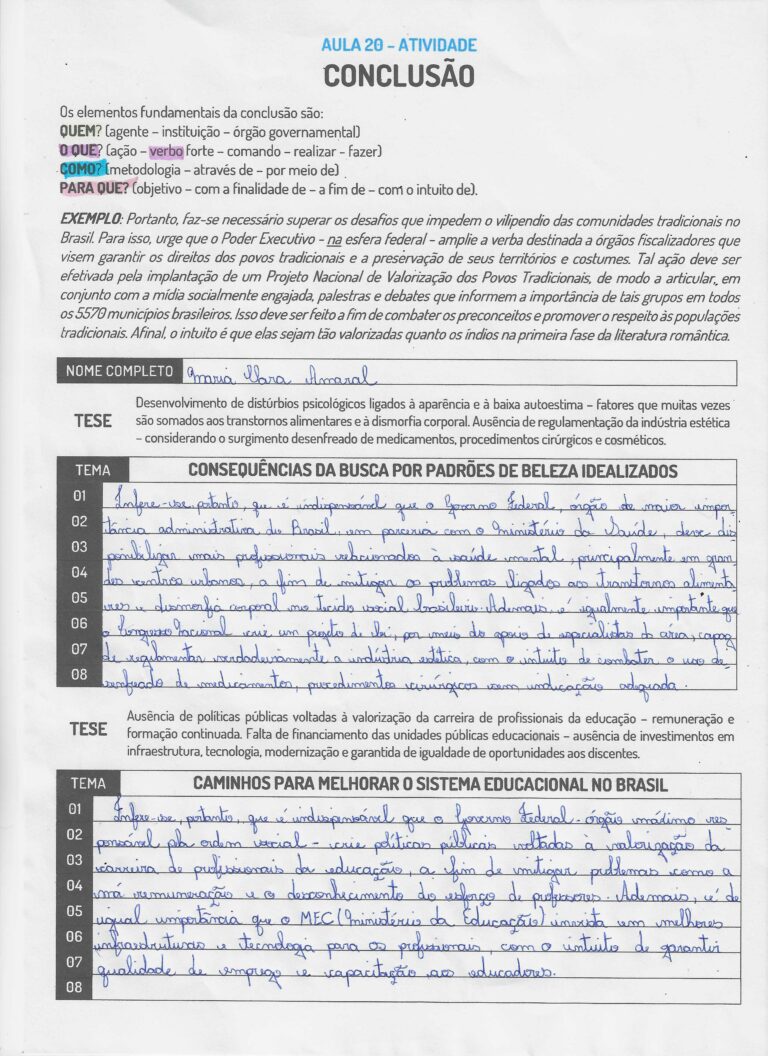 AULA 20 – ATIVIDADE
CONCLUSÃO
Os elementos fundamentais da conclusão são:
QUEM? (agente – instituição – órgão governamental)
O QUE? (ação – verbo forte – comando – realizar - fazer)
COMO? (metodologia – através de – por meio de)
PARA QUE? (objetivo – com a finalidade de – a fim de – com o intuito de).
EXEMPLO: Portanto, faz-se necessário superar os desafios que impedem o vilipendio das comunidades tradicionais no
Brasil. Para isso, urge que o Poder Executivo - na esfera federal - amplie a verba destinada a órgãos fiscalizadores que
visem garantir os direitos dos povos tradicionais e a preservação de seus territórios e costumes. Tal ação deve ser
efetivada pela implantação de um Projeto Nacional de Valorização dos Povos Tradicionais, de modo a articular, em
conjunto com a mídia socialmente engajada, palestras e debates que informem a importância de tais grupos em todos
os 5570 municípios brasileiros. Isso deve ser feito a fim de combater os preconceitos e promover o respeito às populações
tradicionais. Afinal, o intuito é que elas sejam tão valorizadas quanto os índios na primeira fase da literatura romântica.
NOME COMPLETO Maria Clara Amaral
TESE Desenvolvimento de distúrbios psicológicos ligados à aparência e à baixa autoestima – fatores que muitas vezes
são somados aos transtornos alimentares e à dismorfia corporal. Ausência de regulamentação da indústria estética
– considerando o surgimento desenfreado de medicamentos, procedimentos cirúrgicos e cosméticos.
TEMA CONSEQUÊNCIAS DA BUSCA POR PADRÕES DE BELEZA IDEALIZADOS
01 Infere-se, portanto, que é indispensável que o Governo Federal, órgão de maior impor-
02 tância administrativa do Brasil, em parceria com o Ministério da Saúde, deve dis-
03 ponibilizar mais profissionais relacionados à saúde mental, principalmente em gran-
04 des centros urbanos, a fim de mitigar os problemas ligados aos transtornos alimenta-
05 res e dismorfia corporal no tecido social brasileiro. Ademais, é igualmente importante que
06 o Congresso Nacional crie um projeto de lei, por meio do apoio de especialistas da área, capaz
07 de regulamentar verdadeiramente a indústria estética, com o intuito de combater o uso de-
08 senfreado de medicamentos, procedimentos cirúrgicos sem indicação adequada.
TESE Ausência de políticas públicas voltadas à valorização da carreira de profissionais da educação – remuneração e
formação continuada. Falta de financiamento das unidades públicas educacionais – ausência de investimentos em
infraestrutura, tecnologia, modernização e garantida de igualdade de oportunidades aos discentes.
TEMA CAMINHOS PARA MELHORAR O SISTEMA EDUCACIONAL NO BRASIL
01 Infere-se, portanto, que é indispensável que o Governo Federal - órgão máximo res-
02 ponsável pla ordem social - crie políticas públicas voltadas à valorização da
03 carreira de profissionais da educação, a fim de mitigar problemas como a
04 má remuneração e o desconhecimento do esforço de professores. Ademais, é de
05 igual importância que o MEC (Ministério da Educação) invista em melhores
06 infraestruturas e tecnologia para os profissionais, com o intuito de garantir
07 qualidade de emprego e capacitação aos educadores.
08